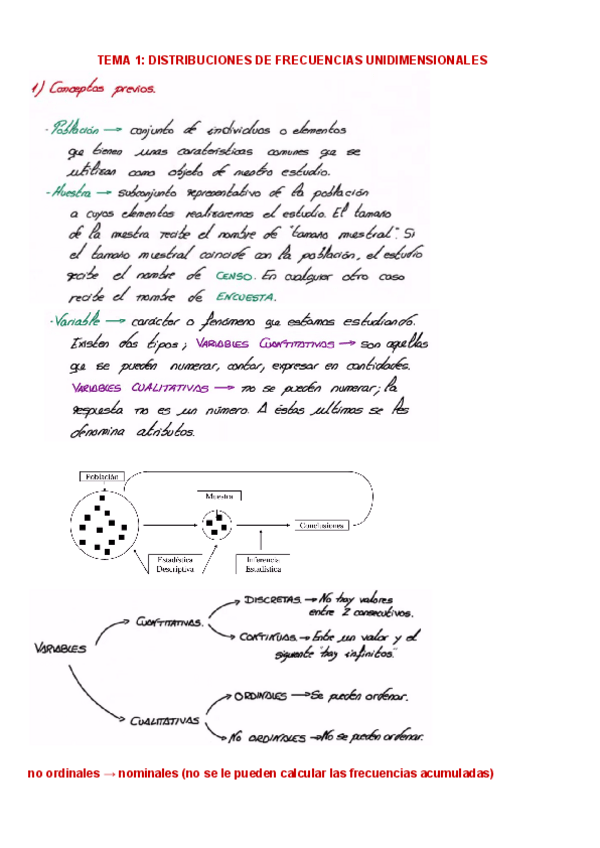 TEMA 1: DISTRIBUCIONES DE FRECUENCIAS UNIDIMENSIONALES
1) Conceptos previos.
· Población → conjunto de individuos o elementos
que tienen unas características comunes que se
utilizan como objeto de nuestro estudio.
· Muestra → subconjunto representativo de la población
a cuyos elementos realizaremos el estudio. El tamaño
de la muestra recibe el nombre de "tamaño muestral". Si
el tamaño muestral coincide con la población, el estudio
recibe el nombre de CENSO. En cualquier otro caso
recibe el nombre de ENCUESTA.
· Variable → carácter o fenómeno que estamos estudiando.
Existen dos tipos; VARIABLES CUANTITATIVAS → son aquellas
que se pueden numerar, contar, expresar en cantidades.
VARIABLES CUALITATIVAS → no se pueden numerar; la
respuesta no es un número. A éstas últimas se les
denomina atributos.
Población
Muestra
Conclusiones
Estadística
Descriptiva
Inferencia
Estadística
VARIABLES
CUANTITATIVAS.
DISCRETAS. → No hay valores
entre 2 consecutivos.
CONTINUAS. → Entre un valor y el
siguiente "hay infinitos."
CUALITATIVAS
ORDINALES → Se pueden ordenar.
NO ORDINALES → No se pueden ordenar.
no ordinales → nominales (no se le pueden calcular las frecuencias acumuladas)